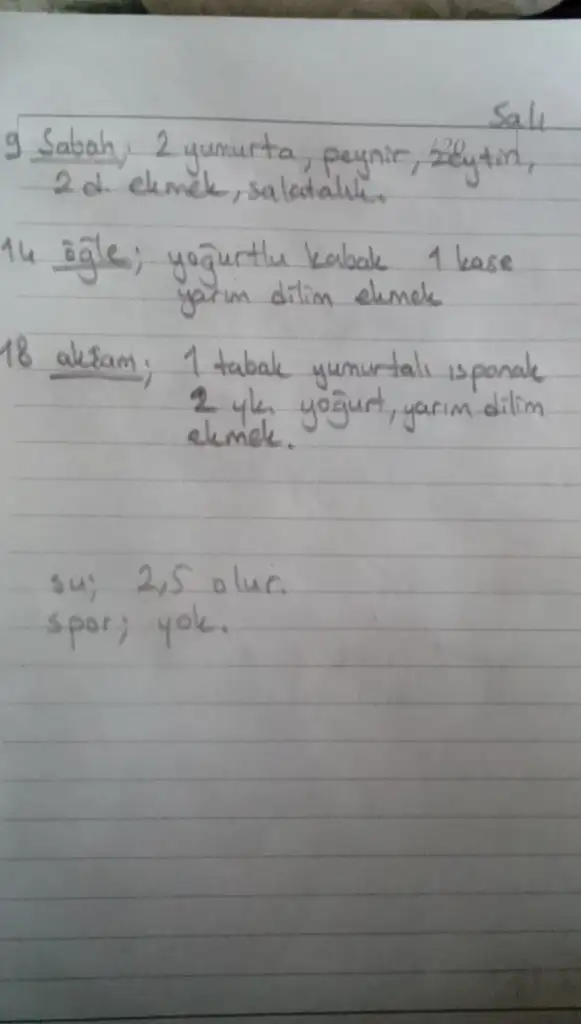 Salı
9 Sabah; 2 yumurta, peynir, zeytin,
2 d. ekmek, salatalık.
14 öğle; yoğurtlu kabak 1 kase
yarım dilim ekmek
18 akşam; 1 tabak yumurtalı ıspanak
2 yk. yoğurt, yarım dilim
ekmek.
su; 2,5 olur.
spor; yok.